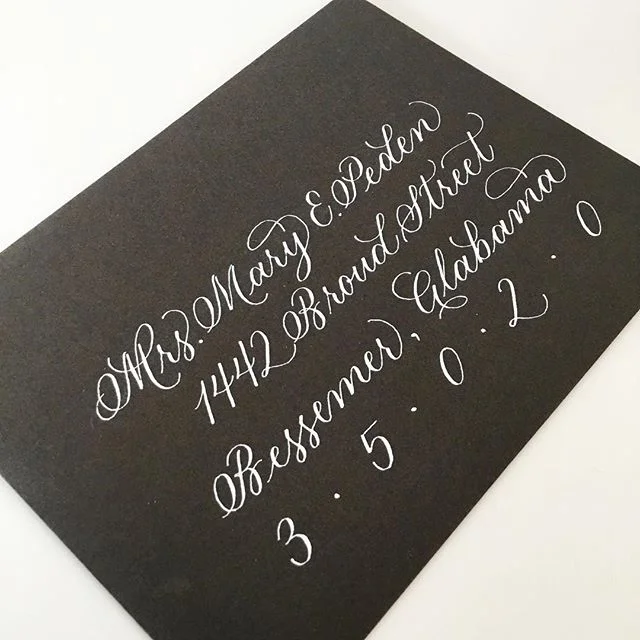 Mrs. Mary E. Peden
1442 Broud Street
Bessemer, Alabama
3 · 5 · 0 · 2 · 0